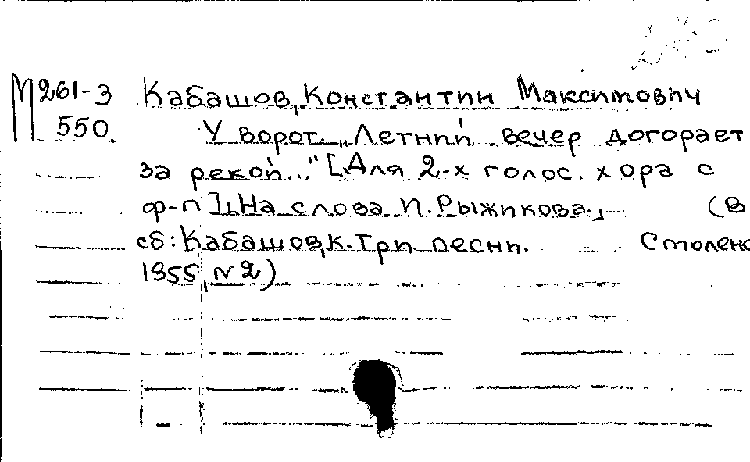 М261-3 Кабашов, Константин Максимович
550. У ворот. „Летний вечер догорает
за рекой..." [Для 2-х голос. хора с
ф-п]. На слова П. Рыжикова. (В
сб: Кабашов, К. Три песни. Смоленс
1955, №2)